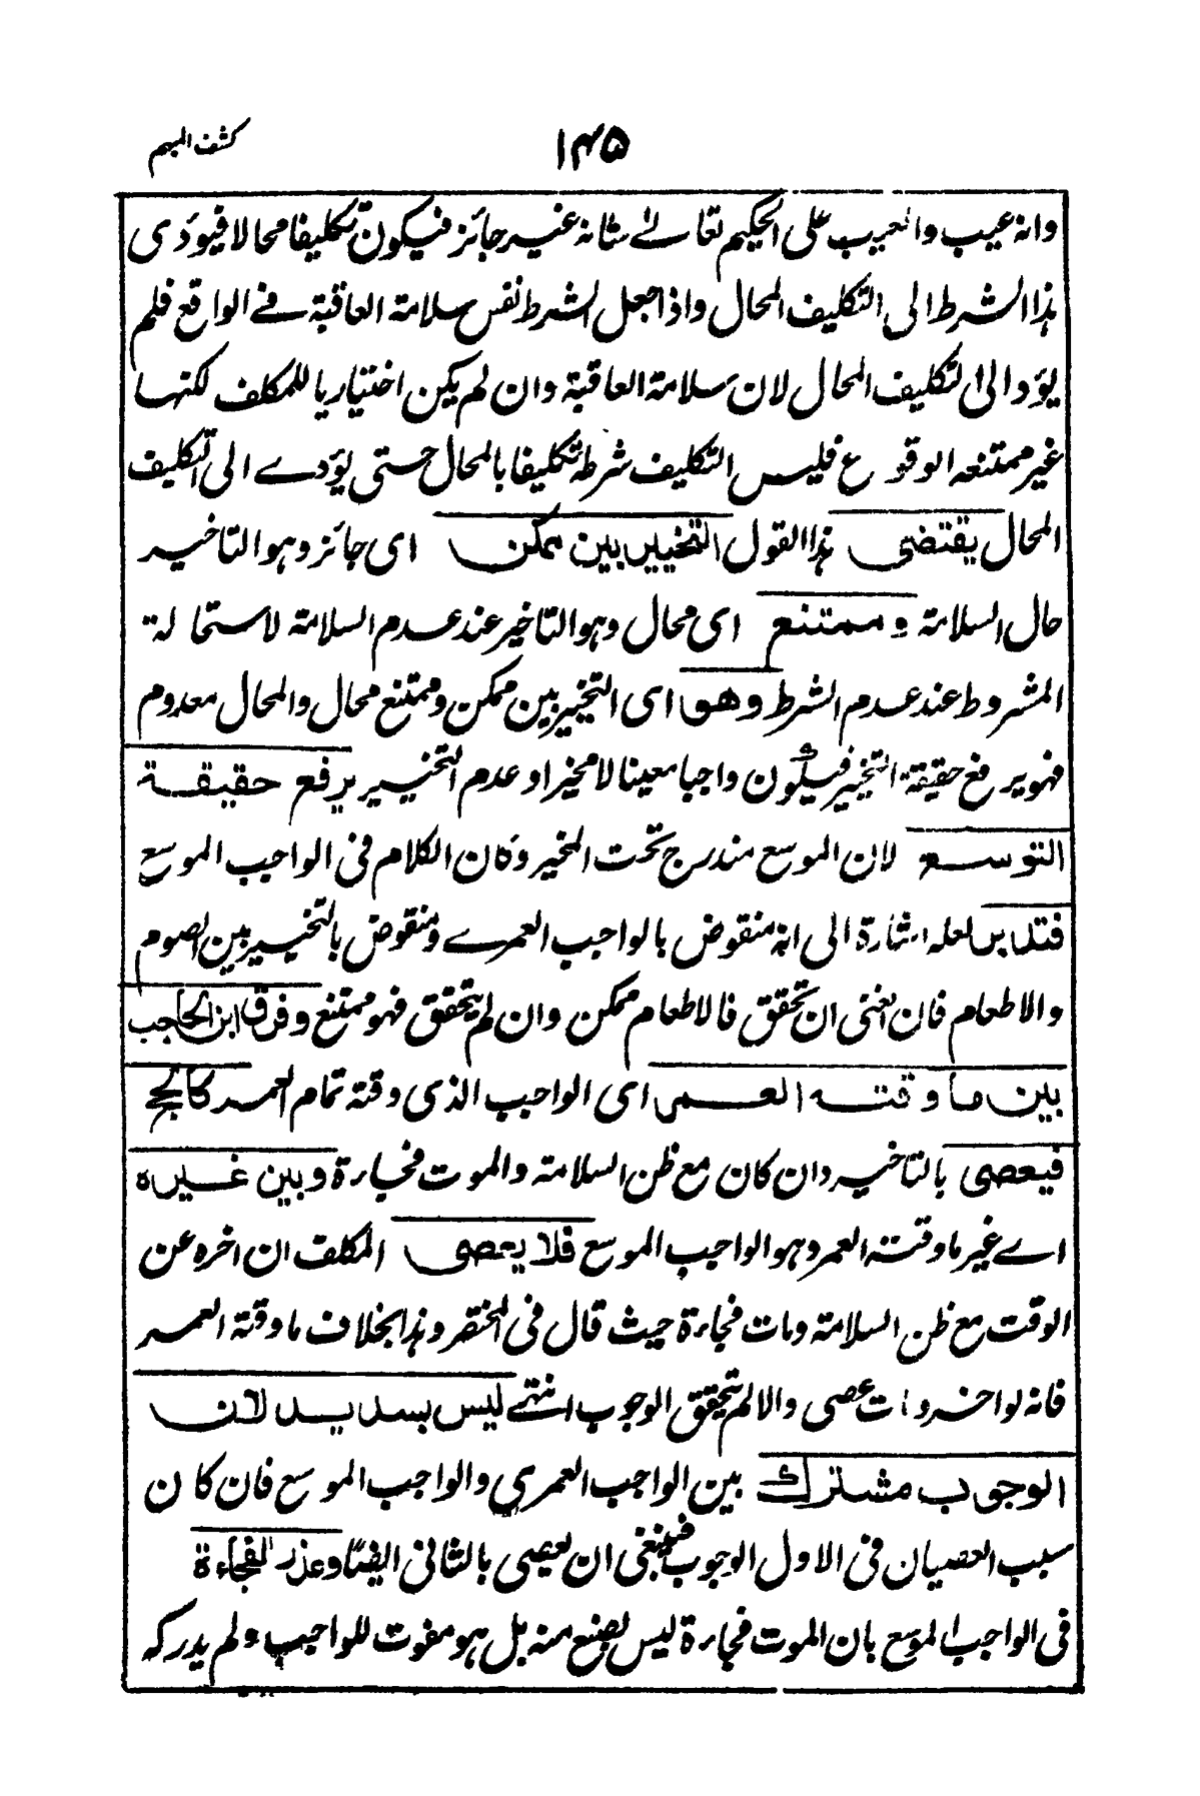 كشف المبهم
١٤٥
وانه عيب والعيب على الحكيم تعالے شانه غير جائز فيكون تكليفا محالا فيؤدى
هذا الشرط الى التكليف المحال واذا جعل الشرط نفس سلامة العاقبة فے الواقع فلم
يؤد الى التكليف المحال لان سلامة العاقبة وان لم يكن اختياريا للمكلف لكنها
غير ممتنعه الوقوع فليس التكليف شرطه تكليفا بالمحال حتى يؤدے الى التكليف
المحال يقتضى هذا القول التخيير بين ممكن اى جائز وهو التاخير
حال السلامة و ممتنع اى محال وهو التاخير عند عدم السلامة لاستحالة
المشروط عند عدم الشرط وهو اى التخيير بين ممكن وممتنع محال والمحال معدوم
فهو يرفع حقيقة التخيير فيكون واجبا معينا لا مخيرا وعدم التخيير يرفع حقيقة
التوسع لان الموسع مندرج تحت المخير وكان الكلام فى الواجب الموسع
فتدبر لعله اشارة الى انه منقوض بالواجب العمرے ومنقوض بالتخيير بين الصوم
والاطعام فان الغنى ان تحقق فالاطعام ممكن وان لم يتحقق فهو ممتنع وفرق ابن الحاجب
بين ما وقته العمر اى الواجب الذى وقته تمام العمر كالحج
فيعصى بالتاخير وان كان مع ظن السلامة والموت فجاءة وبين غيره
اے غير ما وقته العمر وهو الواجب الموسع فلا يعصى المكلف ان اخره عن
الوقت مع ظن السلامة ومات فجاءة حيث قال فى المختصر وهذا بخلاف ما وقته العمر
فانه لو اخر ومات عصى والا لم يتحقق الوجوب انتهے ليس بسديد لان
الوجوب مشترك بين الواجب العمري والواجب الموسع فان كان
سبب العصيان فى الاول الوجوب فينبغى ان يعصى بالثانى ايضا وعذر الفجاءة
فى الواجب الموسع بان الموت فجاءة ليس بصنع منه بل هو مفوت للواجب ولم يدركه